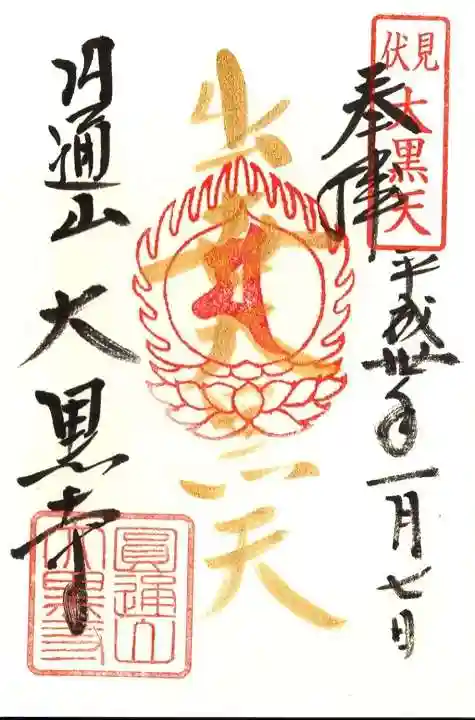 伏見
大黒天
奉拝
平成卅年一月七日
出世大黒天
円通山 大黒寺
圓通山
大黒寺